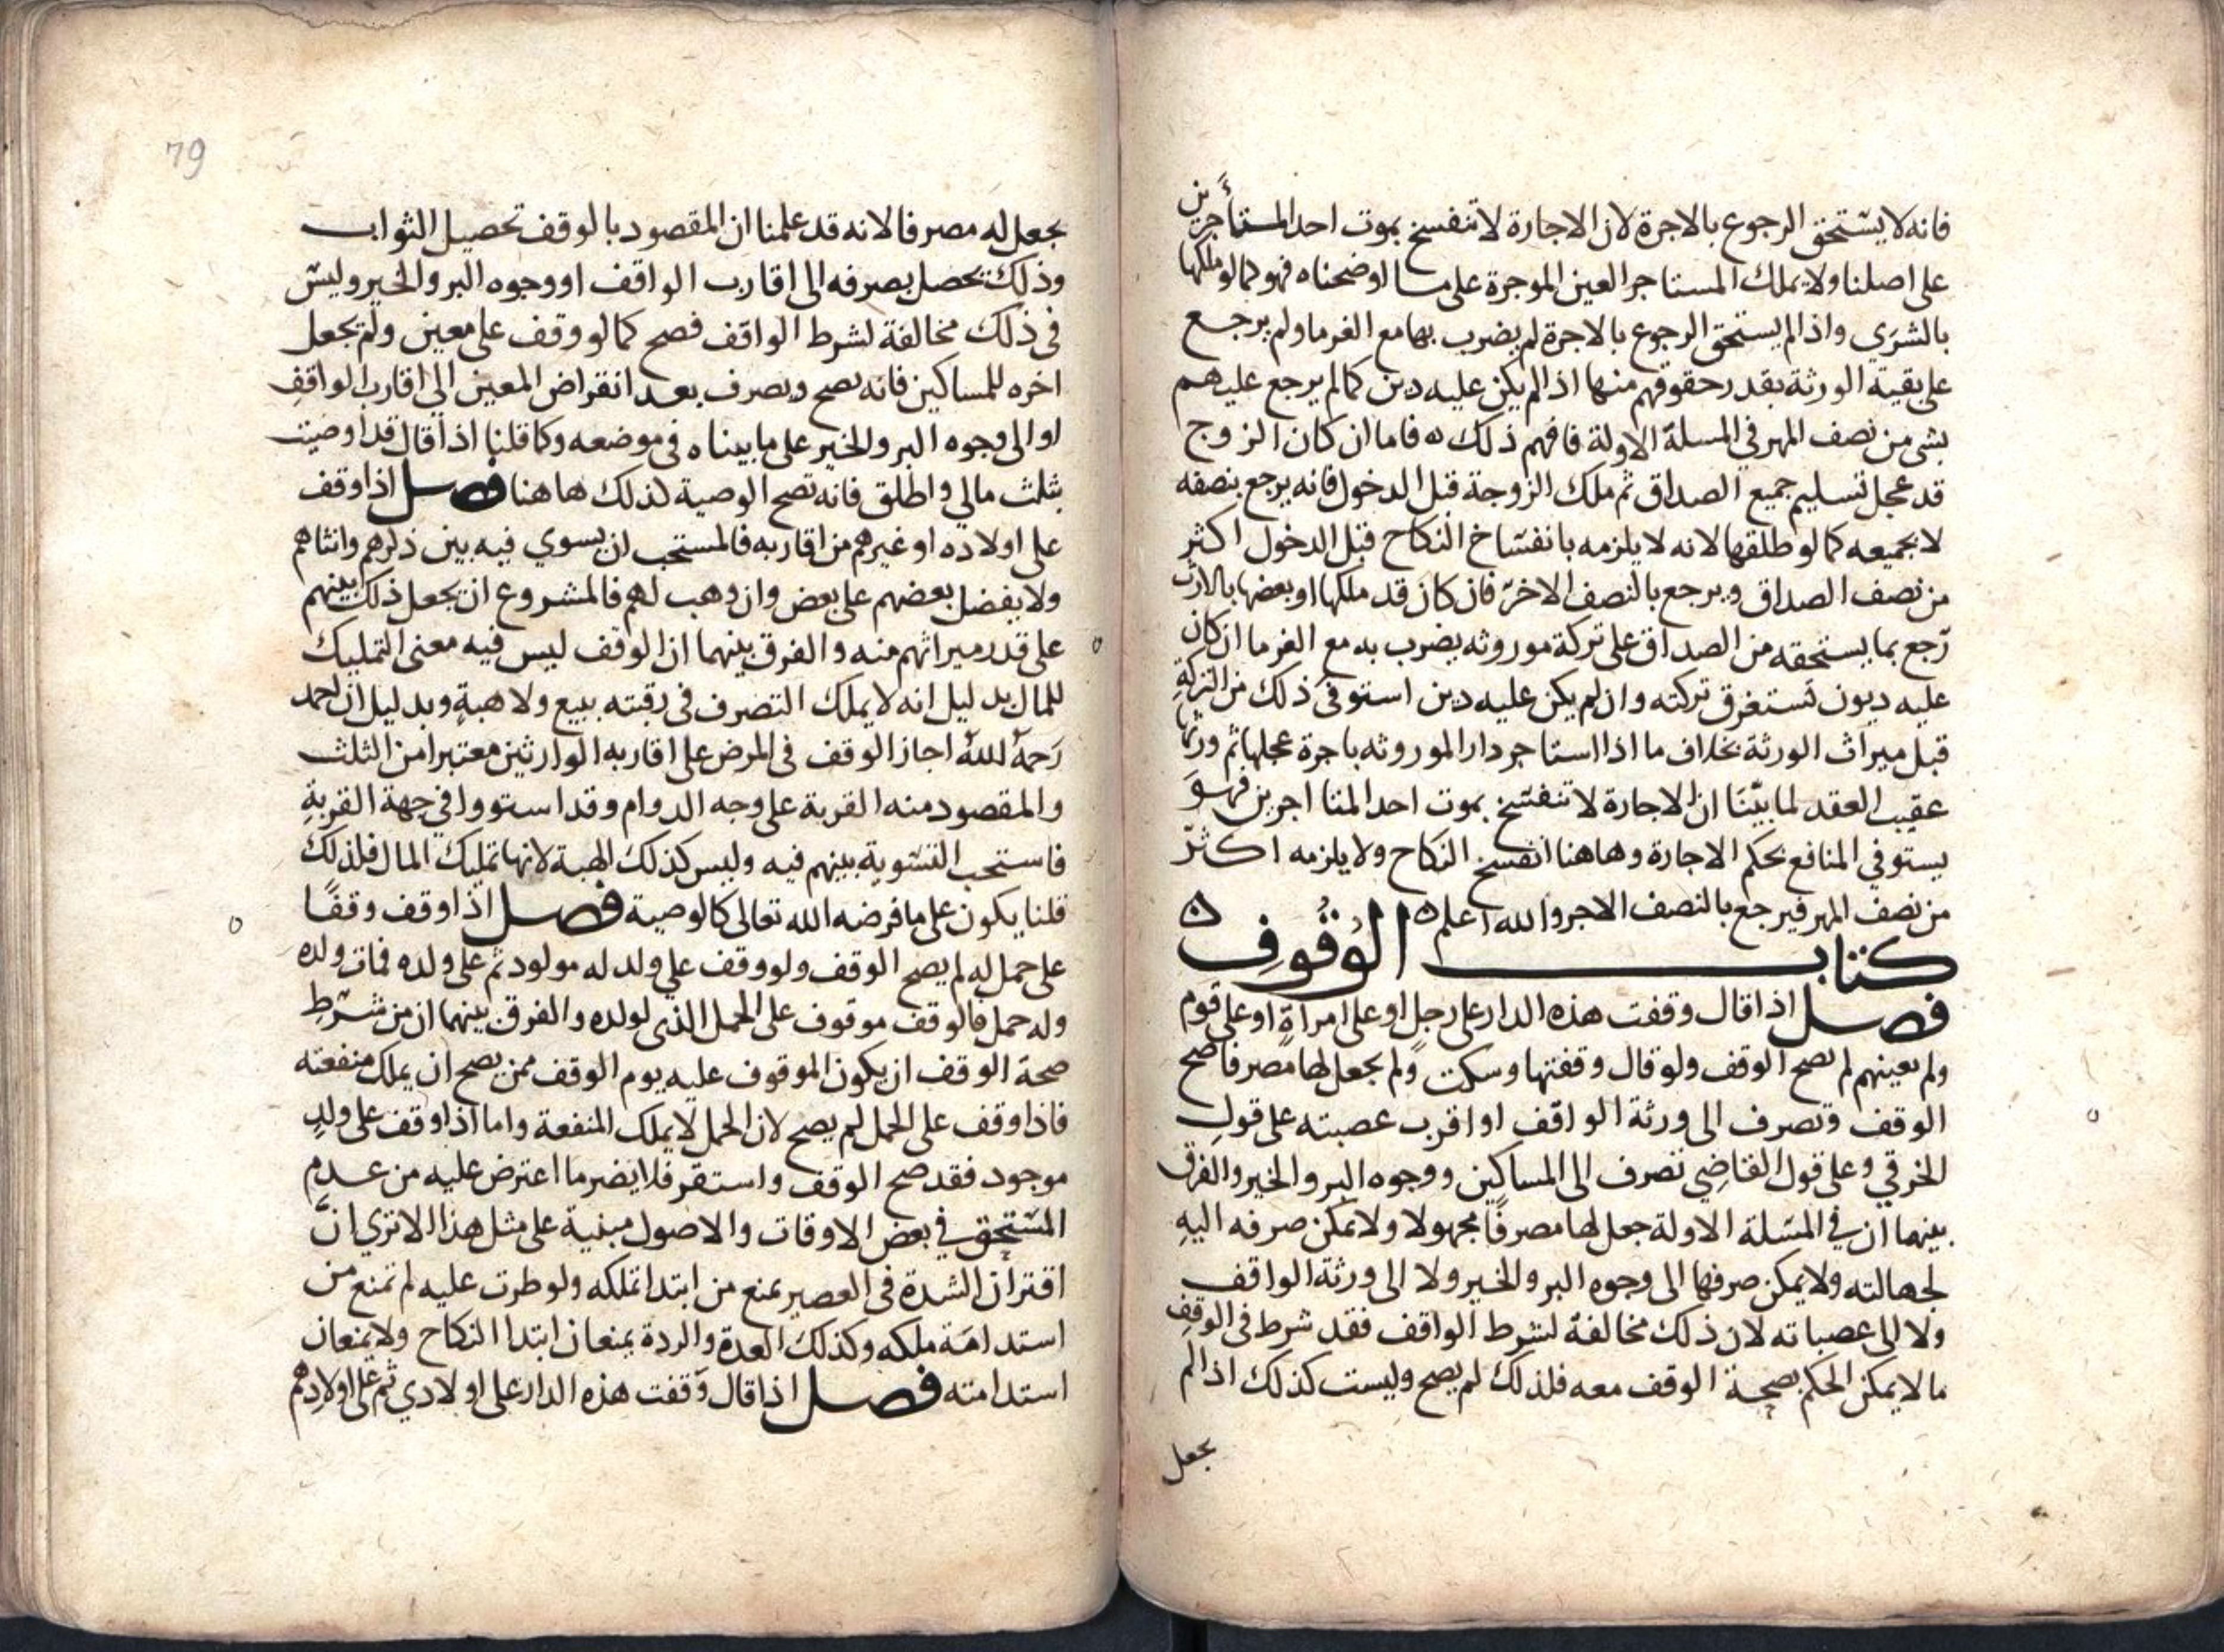 فانه لا يستحق الرجوع بالاجرة لان الاجارة لا تنفسخ بموت احد المستأجرين
على اصلنا ولا يملك المستاجر العين الموجرة على ما اوضحناه فهو كما لو ملكها
بالشرى واذا لم يستحق الرجوع بالاجرة لم يضرب بها مع الغرما ولم يرجع
على بقية الورثة بقدر حقوقهم منها اذا لم يكن عليه دين كما لم يرجع عليهم
بشى من نصف المهر في المسلة الاولة فافهم ذلك ه فاما ان كان الزوج
قد عجل تسليم جميع الصداق ثم ملك الزوجة قبل الدخول فانه يرجع بنصفه
لا بجميعه كما لو طلقها لانه لا يلزمه بانفساخ النكاح قبل الدخول اكثر
من نصف الصداق ويرجع بالنصف الاخر فان كان قد ملكها او بعضها بالارث
رجع بما يستحقه من الصداق على تركة موروثه يضرب به مع الغرما ان كان
عليه ديون تستغرق تركته وان لم يكن عليه دين استوفى ذلك من التركة
قبل ميراث الورثة بخلاف ما اذا استاجر دار الموروثه باجرة عجلها ثم ورثها
عقيب العقد لما بيّنا ان الاجارة لا تنفسخ بموت احد المتااجرين فهو
يستوفي المنافع بحكم الاجارة وهاهنا انفسخ النكاح ولا يلزمه اكثر
من نصف المهر فيرجع بالنصف الاخر والله اعلم ه
كتاب الوُقُوفِ ه
فصل اذا قال وقفت هذه الدار على رجل او على امراة او على قوم
ولم يعينهم لم يصح الوقف ولو قال وقفتها وسكت ولم يجعل لها مصرفا صح
الوقف وتصرف الى ورثة الواقف او اقرب عصبته على قول
الخرقي وعلى قول القاضي تصرف الى المساكين ووجوه البر والخير والفرق
بينهما ان في المسلة الاولة جعل لها مصرفًا مجهولا ولا يمكن صرفه اليه
لجهالته ولا يمكن صرفها الى وجوه البر والخير ولا الى ورثة الواقف
ولا الى عصباته لان ذلك مخالفة لشرط الواقف فقد شرط في الوقف
ما لا يمكن الحكم بصحة الوقف معه فلذلك لم يصح وليست كذلك اذا لم
يجعل
79
يجعل له مصرفا لانه قد علمنا ان المقصود بالوقف تحصيل الثواب
وذلك يحصل بصرفه الى اقارب الواقف او وجوه البر والخير وليس
فى ذلك مخالفة لشرط الواقف فصح كما لو وقف على معين ولم يجعل
اخره للمساكين فانه يصح ويصرف بعد انقراض المعين الى اقارب الواقف
او الى وجوه البر والخير على ما بيناه في موضعه وكما قلنا اذا قال قد اوصيت
بثلث مالي واطلق فانه تصح الوصية كذلك هاهنا فصل اذا وقف
على اولاده او غيرهم من اقاربه فالمستحب ان يسوي فيه بين ذكرهم وانثاهم
ولا يفضل بعضهم على بعض وان وهب لهم فالمشروع ان يجعل ذلك بينهم
على قدر ميراثهم منه والفرق بينهما ان الوقف ليس فيه معنى التمليك
للمال بدليل انه لا يملك التصرف فى رقبته ببيع ولا هبةٍ وبدليل ان احمد
رَحمهُ اللهُ اجاز الوقف فى المرض على اقاربه الوارثين معتبرا من الثلث
والمقصود منه القربة على وجه الدوام وقد استووا في جهة القربةِ
فاستحب التسوية بينهم فيه وليس كذلك الهبة لانها تمليك المال فلذلك
قلنا يكون على ما فرضه الله تعالى كالوصية فصل اذا وقف وقفًا
على حمل له لم يصح الوقف ولو وقف على ولد له مولود ثم على ولده فمات ولده
وله حمل فالوقف موقوف على الحمل الذى لولده والفرق بينهما ان من شرط
صحة الوقف ان يكون الموقوف عليه يوم الوقف ممن يصح ان يملك منفعته
فاذا وقف على الحمل لم يصح لان الحمل لا يملك المنفعة واما اذا وقف على ولدٍ
موجود فقد صح الوقف واستقر فلا يضر ما اعترض عليه من عدم
المستحق في بعض الاوقات والاصول مبنية على مثل هذا الا ترى انّ
اقتران الشدة فى العصير يمنع من ابتدا تملكه ولو طرت عليه لم تمنع من
استدامة ملكه وكذلك العدة والردة يمنعان ابتدا النكاح ولا يمنعان
استدامته فصل اذا قال وقفت هذه الدار على اولادي ثم على اولادهم